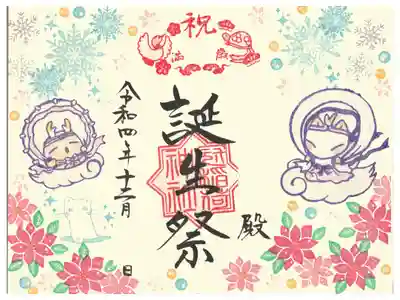 祝
満 歳
殿
誕生祭
令和四年十二月 日